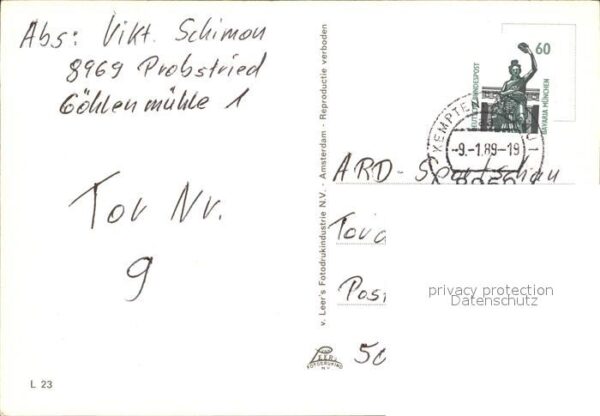 Abs: Vikt. Schimon
8969 Probstried
Göhlenmühle 1
Tor Nr.
9
L 23
v. Leer's Fotodrukindustrie N.V. - Amsterdam - Reproductie verboden
LEER'S
FOTODRUKIND
N.V.
60
DEUTSCHE BUNDESPOST
BAVARIA MÜNCHEN
KEMPTEN
-9.-1.89-19
ARD-Sportschau
Tor
Pos
50
privacy protection
Datenschutz